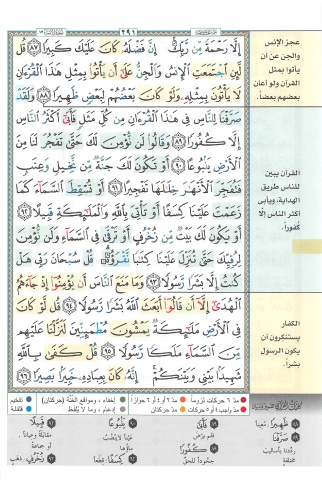 ٢٩١
إِلَّا رَحْمَةً مِّن رَّبِّكَ إِنَّ فَضْلَهُ كَانَ عَلَيْكَ كَبِيرًا ٨٧ قُل
لَّئِنِ اجْتَمَعَتِ الْإِنسُ وَالْجِنُّ عَلَىٰ أَن يَأْتُوا بِمِثْلِ هَٰذَا الْقُرْءَانِ
لَا يَأْتُونَ بِمِثْلِهِ وَلَوْ كَانَ بَعْضُهُمْ لِبَعْضٍ ظَهِيرًا ٨٨ وَلَقَدْ
صَرَّفْنَا لِلنَّاسِ فِي هَٰذَا الْقُرْءَانِ مِن كُلِّ مَثَلٍ فَأَبَىٰ أَكْثَرُ النَّاسِ
إِلَّا كُفُورًا ٨٩ وَقَالُوا لَن نُّؤْمِنَ لَكَ حَتَّىٰ تَفْجُرَ لَنَا مِنَ
الْأَرْضِ يَنبُوعًا ٩٠ أَوْ تَكُونَ لَكَ جَنَّةٌ مِّن نَّخِيلٍ وَعِنَبٍ
فَتُفَجِّرَ الْأَنْهَارَ خِلَالَهَا تَفْجِيرًا ٩١ أَوْ تُسْقِطَ السَّمَاءَ كَمَا
زَعَمْتَ عَلَيْنَا كِسَفًا أَوْ تَأْتِيَ بِاللَّهِ وَالْمَلَائِكَةِ قَبِيلًا ٩٢
أَوْ يَكُونَ لَكَ بَيْتٌ مِّن زُخْرُفٍ أَوْ تَرْقَىٰ فِي السَّمَاءِ وَلَن نُّؤْمِنَ
لِرُقِيِّكَ حَتَّىٰ تُنَزِّلَ عَلَيْنَا كِتَابًا نَّقْرَؤُهُ قُلْ سُبْحَانَ رَبِّي هَلْ
كُنتُ إِلَّا بَشَرًا رَّسُولًا ٩٣ وَمَا مَنَعَ النَّاسَ أَن يُؤْمِنُوا إِذْ جَاءَهُمُ
الْهُدَىٰ إِلَّا أَن قَالُوا أَبَعَثَ اللَّهُ بَشَرًا رَّسُولًا ٩٤ قُل لَّوْ كَانَ
فِي الْأَرْضِ مَلَائِكَةٌ يَمْشُونَ مُطْمَئِنِّينَ لَنَزَّلْنَا عَلَيْهِم
مِّنَ السَّمَاءِ مَلَكًا رَّسُولًا ٩٥ قُلْ كَفَىٰ بِاللَّهِ
شَهِيدًا بَيْنِي وَبَيْنَكُمْ إِنَّهُ كَانَ بِعِبَادِهِ خَبِيرًا بَصِيرًا ٩٦
عجز الإنس
والجن عن أن
يأتوا بمثل
القرآن ولو أعان
بعضهم بعضاً.
القرآن يبين
للناس طريق
الهداية، ويأبى
أكثر الناس إلا
كُفوراً.
الكفار
يستنكرون أن
يكون الرسول
بشراً.
مدّ ٦ حركات لزوماً مدّ ٢ أو ٤ أو ٦ جوازاً إخفاء، ومواقع الغُنَّة (حركتان) تفخيم
مدّ واجب ٤ أو ٥ حركات مدّ حركتان إدغام، وما لا يُلفظ قلقلة